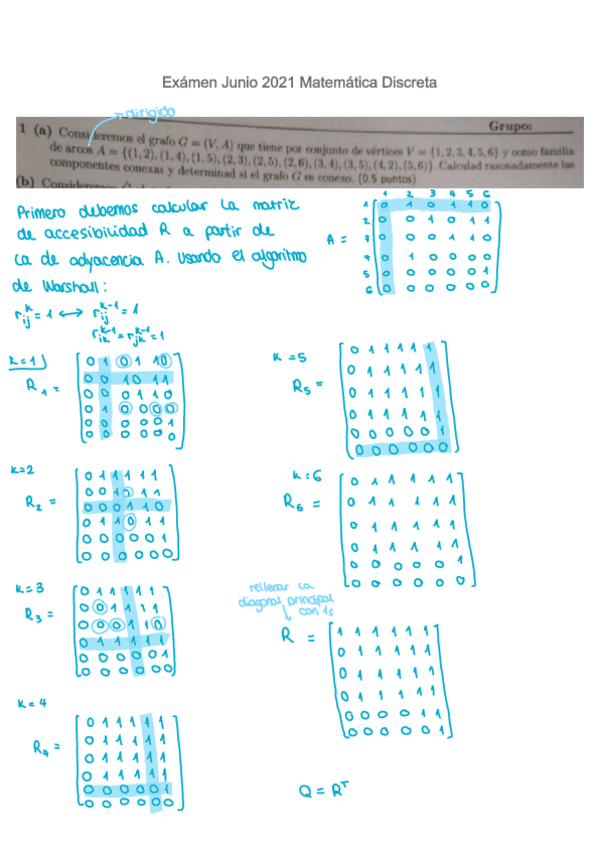 Exámen Junio 2021 Matemática Discreta
→ dirigido
Grupo:
1 (a) Consideremos el grafo G = (V, A) que tiene por conjunto de vértices V = {1, 2, 3, 4, 5, 6} y como familia
de arcos A = {(1, 2), (1, 4), (1, 5), (2, 3), (2, 5), (2, 6), (3, 4), (3, 5), (4, 2), (5, 6)}. Calculad razonadamente las
componentes conexas y determinad si el grafo G es conexo. (0.5 puntos)
(b) Consideremos
Primero debemos calcular la matriz
de accesibilidad R a partir de
la de adyacencia A. Usando el algoritmo
de Warshall:
r^k_ij = 1 ↔ r^k-1_ij = 1
r^k-1_ik = r^k-1_jk = 1
1 2 3 4 5 6
A =
1 0 1 0 1 1 0
2 0 0 1 0 1 1
3 0 0 0 1 1 0
4 0 1 0 0 0 0
5 0 0 0 0 0 1
6 0 0 0 0 0 0
k=1
R1 =
0 1 0 1 1 0
0 0 1 0 1 1
0 0 0 1 1 0
0 1 0 0 0 0
0 0 0 0 0 1
0 0 0 0 0 0
k=2
R2 =
0 1 1 1 1 1
0 0 1 0 1 1
0 0 0 1 1 0
0 1 1 0 1 1
0 0 0 0 0 1
0 0 0 0 0 0
k=3
R3 =
0 1 1 1 1 1
0 0 1 1 1 1
0 0 0 1 1 0
0 1 1 1 1 1
0 0 0 0 0 1
0 0 0 0 0 0
k=4
R4 =
0 1 1 1 1 1
0 1 1 1 1 1
0 1 1 1 1 1
0 1 1 1 1 1
0 0 0 0 0 1
0 0 0 0 0 0
k=5
R5 =
0 1 1 1 1 1
0 1 1 1 1 1
0 1 1 1 1 1
0 1 1 1 1 1
0 0 0 0 0 1
0 0 0 0 0 0
k=6
R6 =
0 1 1 1 1 1
0 1 1 1 1 1
0 1 1 1 1 1
0 1 1 1 1 1
0 0 0 0 0 1
0 0 0 0 0 0
rellenar la
diagonal principal
con 1s
R =
1 1 1 1 1 1
0 1 1 1 1 1
0 1 1 1 1 1
0 1 1 1 1 1
0 0 0 0 1 1
0 0 0 0 0 1
Q = R^T